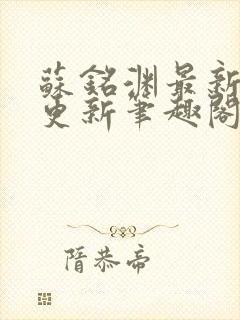 蘇銘淵最新
更新筆趣閣
隋恭帝